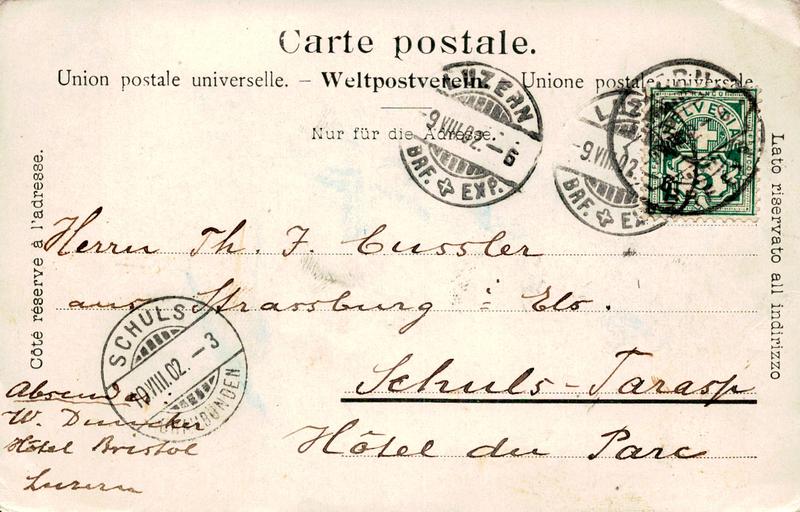 Carte postale.
Union postale universelle. – Weltpostverein. Unione postale universale
Nur für die Adresse.
Côte réservé à l'adresse.
Lato riservato all indirizzo
LUZERN
9.VIII.02. – 6
BRF. EXP.
9.VIII.02
BRF. EX
FRANCO
HELVETIA
5
Herrn Th. F. Cussler
aus Strassburg i Els.
Schuls-Tarasp
Hôtel du Parc
SCHULS
VIII.02. – 3
GRAUBÜNDEN
Absender
W. Duncker
Hôtel Bristol
Luzern